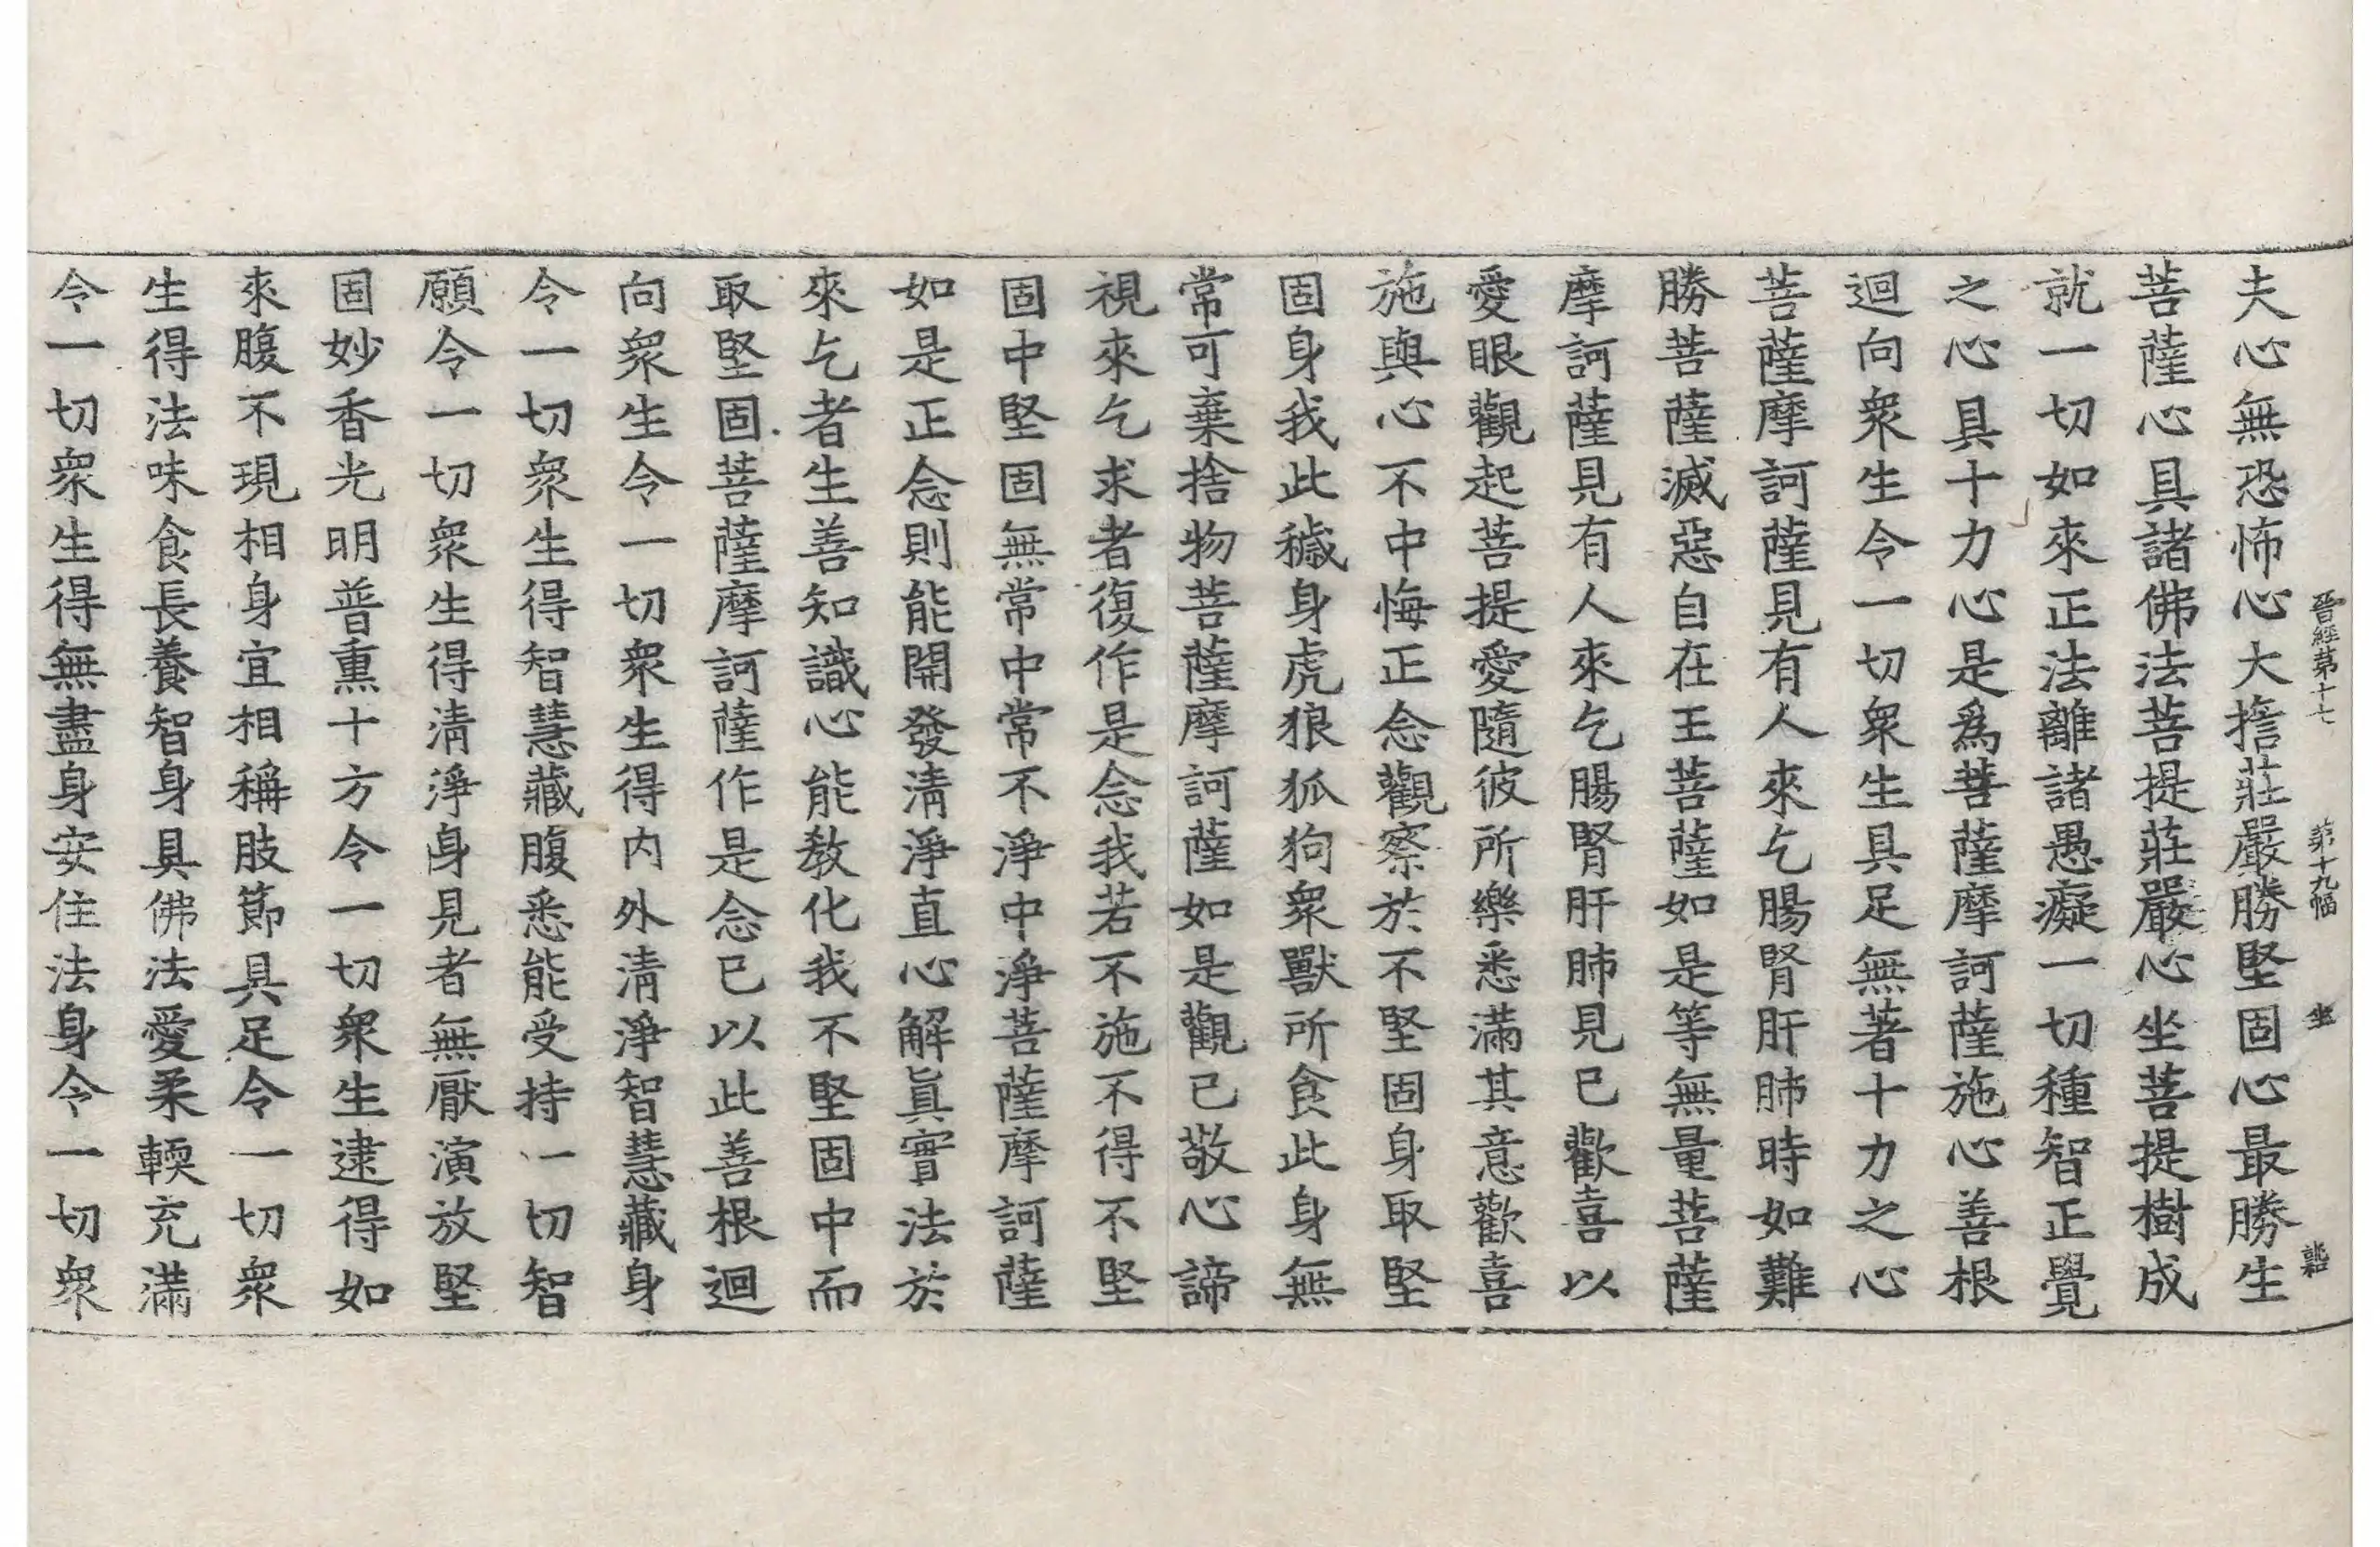 晉經第十七 第十九幅 坐
夫心無恐怖心大擔莊嚴勝堅固心最勝生
菩薩心具諸佛法菩提莊嚴心坐菩提樹成
就一切如來正法離諸愚癡一切種智正覺
之心具十力心是爲菩薩摩訶薩施心善根
迴向衆生令一切衆生具足無著十力之心
菩薩摩訶薩見有人來乞腸腎肝肺時如難
勝菩薩滅惡自在王菩薩如是等無量菩薩
摩訶薩見有人來乞腸腎肝肺見已歡喜以
愛眼觀起菩提愛隨彼所樂悉滿其意歡喜
施與心不中悔正念觀察於不堅固身取堅
固身我此穢身虎狼狐狗衆獸所食此身無
常可棄捨物菩薩摩訶薩如是觀已敬心諦
視來乞求者復作是念我若不施不得不堅
固中堅固無常中常不淨中淨菩薩摩訶薩
如是正念則能開發淸淨直心解眞實法於
來乞者生善知識心能敎化我不堅固中而
取堅固菩薩摩訶薩作是念已以此善根迴
向衆生令一切衆生得内外淸淨智慧藏身
令一切衆生得智慧藏腹悉能受持一切智
願令一切衆生得淸淨身見者無厭演放堅
固妙香光明普熏十方令一切衆生逮得如
來腹不現相身宜相稱肢節具足令一切衆
生得法味食長養智身具佛法愛柔輭充滿
令一切衆生得無盡身安住法身令一切衆